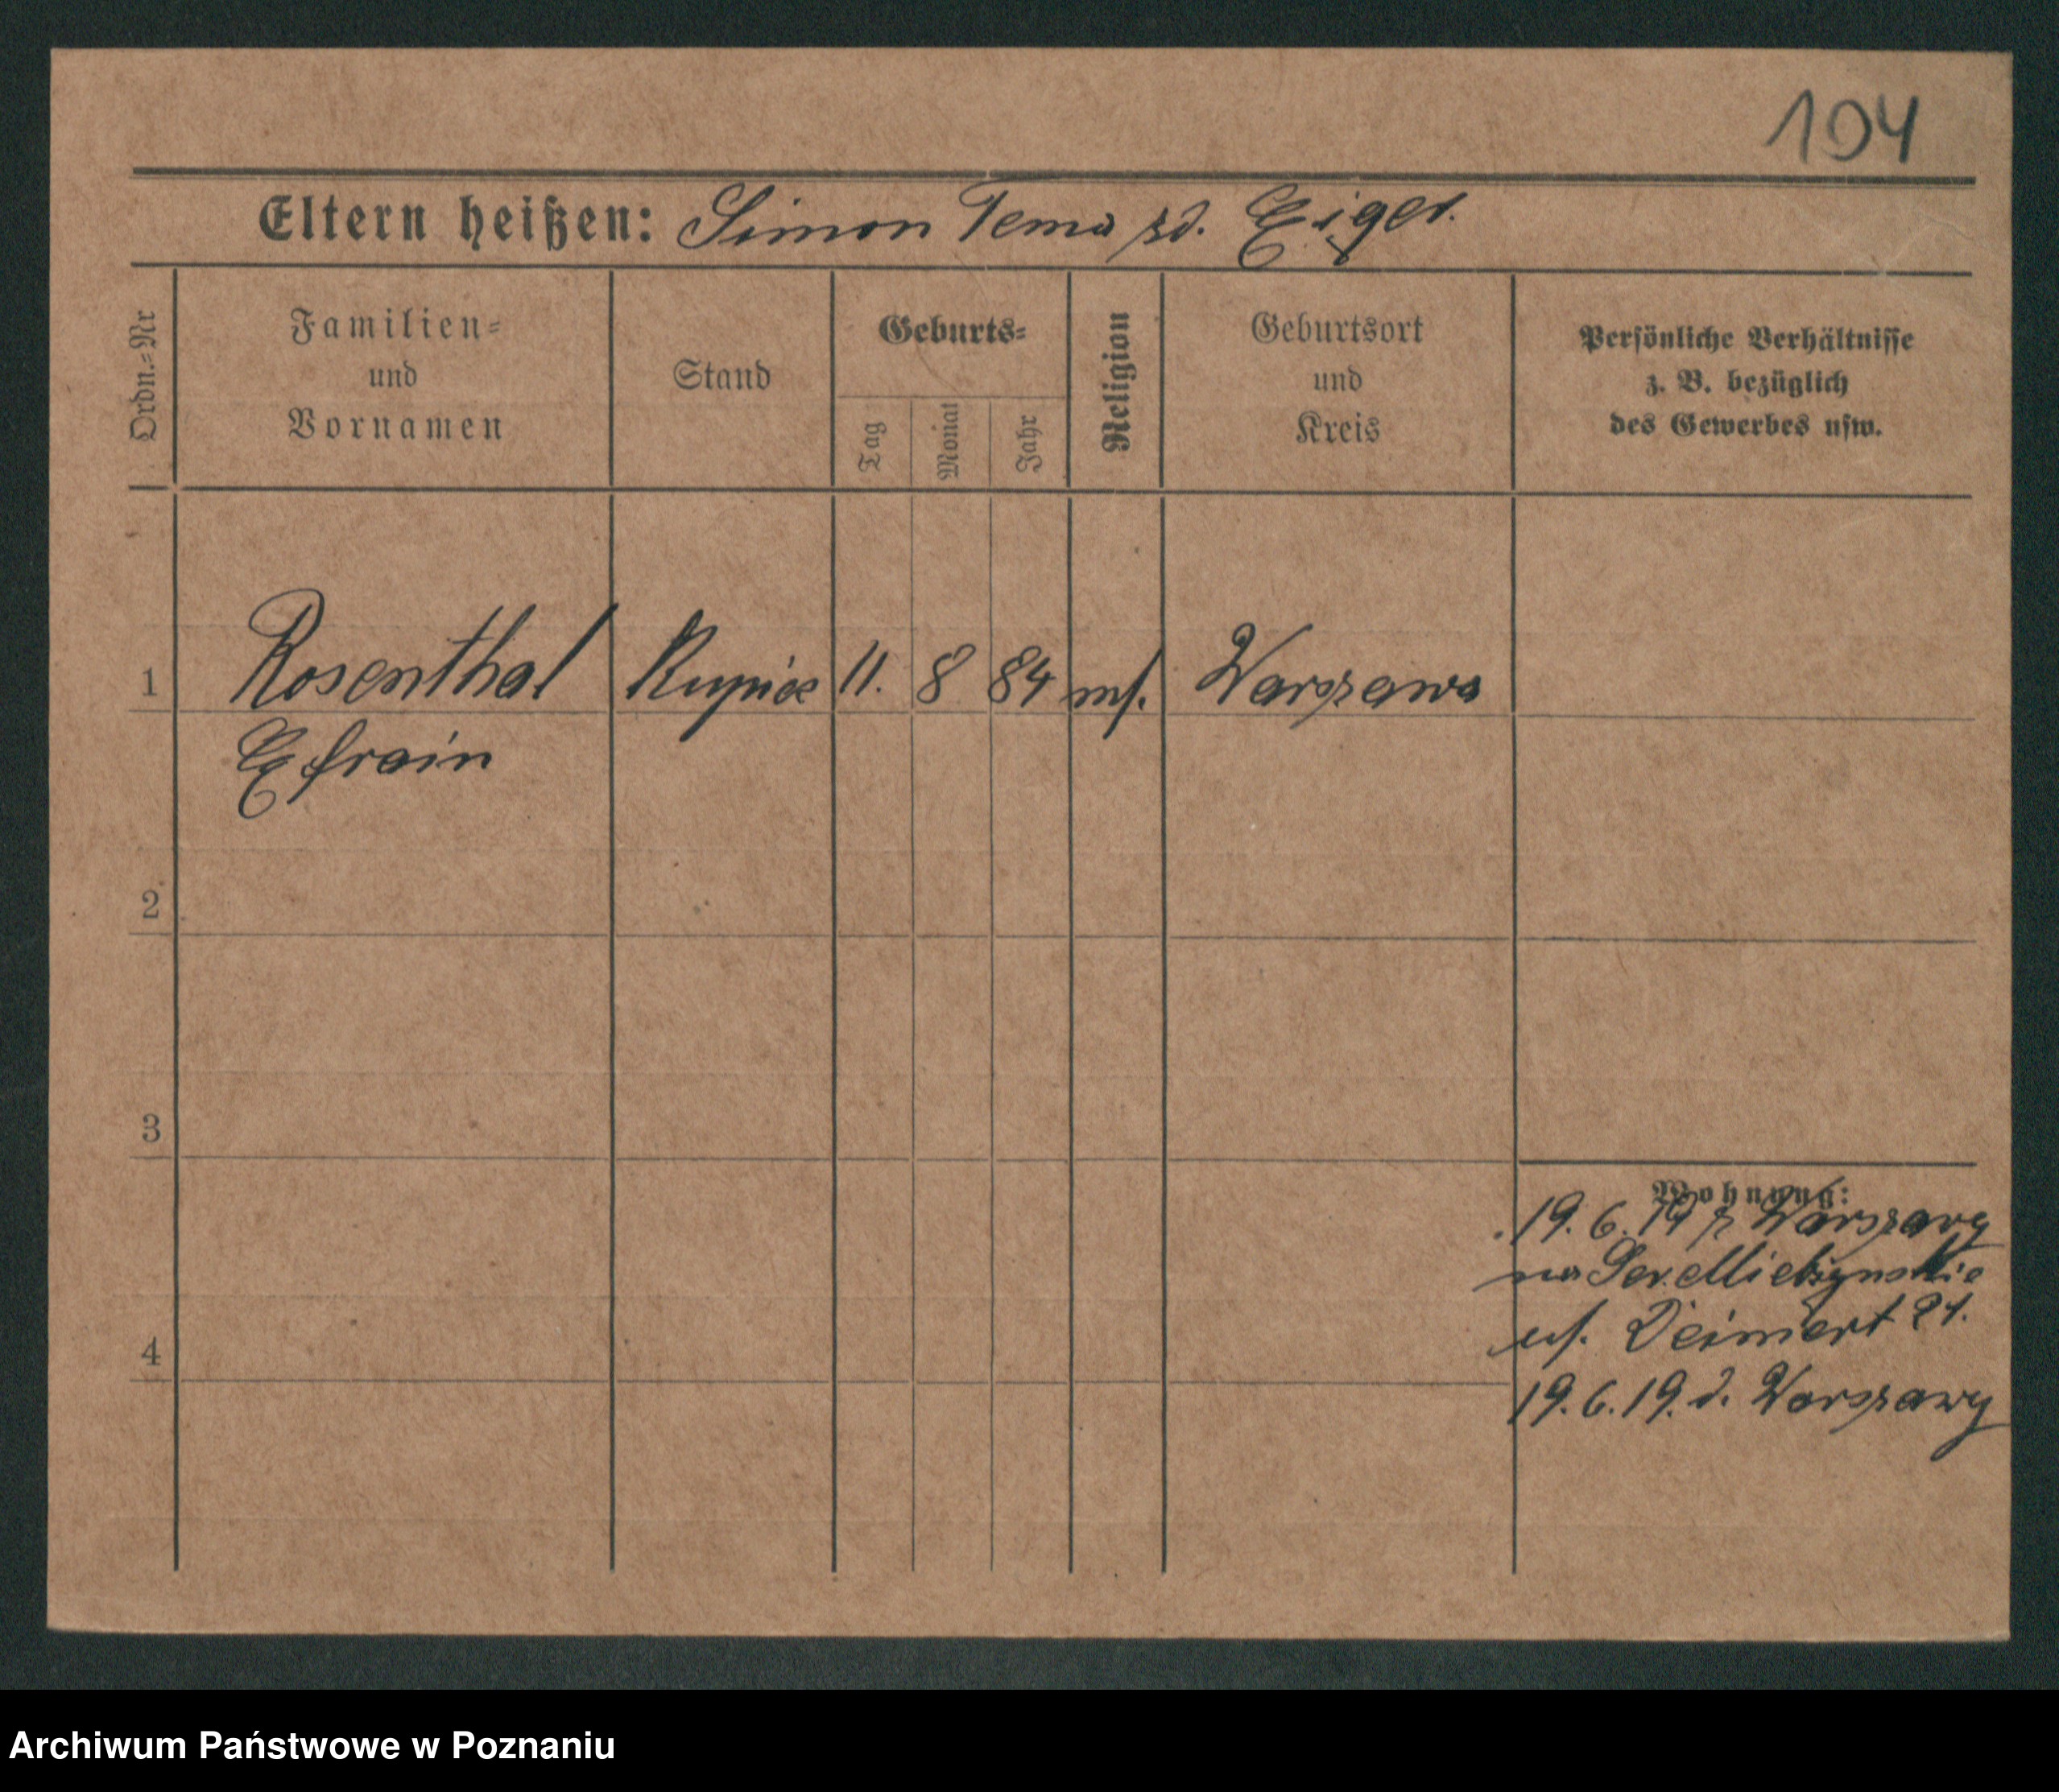 104
Eltern heißen: Simon Tema zd. Eiger.
Ordn.-Nr
Familien-
und
Vornamen
Stand
Geburts-
Tag
Monat
Jahr
Religion
Geburtsort
und
Kreis
Persönliche Verhältnisse
z. B. bezüglich
des Gewerbes usw.
1 Rosenthal Kupiec 11. 8 84 mż. Warszawa
Efroin
2
3
4
Wohnung:
19. 6. 19 z Warszawy
na Sew. Mielżyńskie
Deimert 21.
19. 6. 19. d. Warszawy
Archiwum Państwowe w Poznaniu